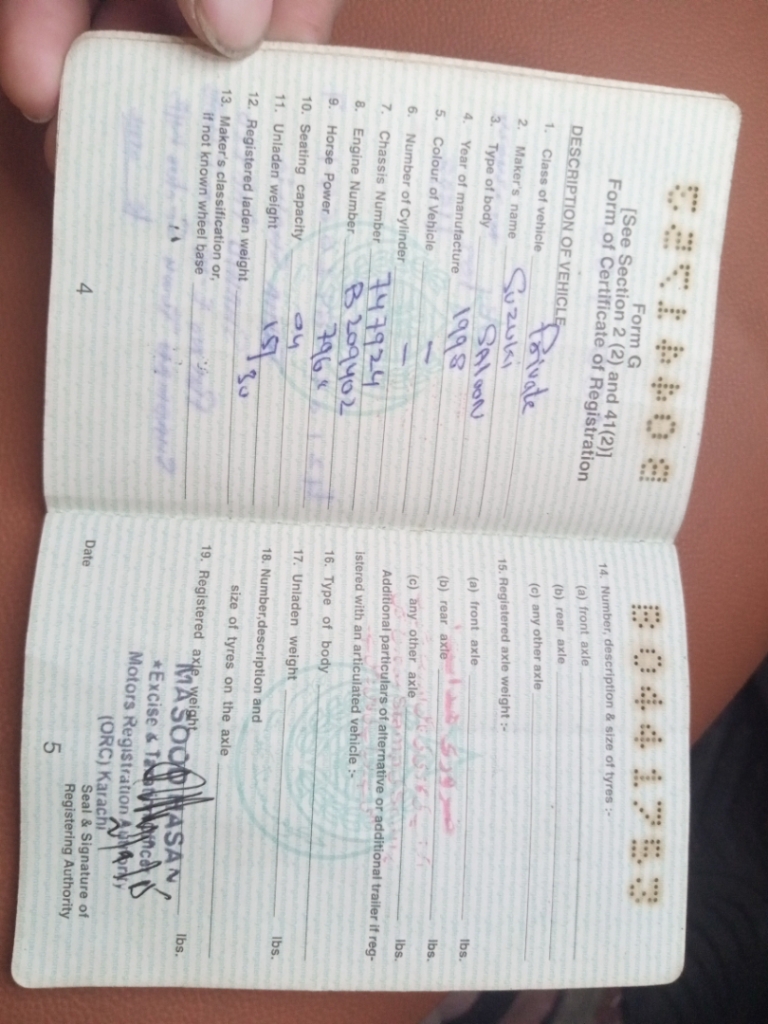 Form G
[See Section 2 (2) and 41(2)]
Form of Certificate of Registration
DESCRIPTION OF VEHICLE
1. Class of vehicle Private
2. Maker's name Suzuki
3. Type of body Saloon
4. Year of manufacture 1998
5. Colour of Vehicle –
6. Number of Cylinder –
7. Chassis Number 747924
8. Engine Number B209402
9. Horse Power 796
10. Seating capacity 04
11. Unladen weight
12. Registered laden weight
13. Maker's classification or,
if not known wheel base
4
14. Number, description & size of tyres :-
(a) front axle
(b) rear axle
(c) any other axle
15. Registered axle weight :-
(a) front axle lbs.
(b) rear axle lbs.
(c) any other axle lbs.
Additional particulars of alternative or additional trailer if reg-
istered with an articulated vehicle :-
16. Type of body
17. Unladen weight lbs.
18. Number,description and
size of tyres on the axle
19. Registered axle weight lbs.
MASOOD HASAN
Motors Registration Authority,
(ORC) Karachi
Date
Seal & Signature of
Registering Authority
5